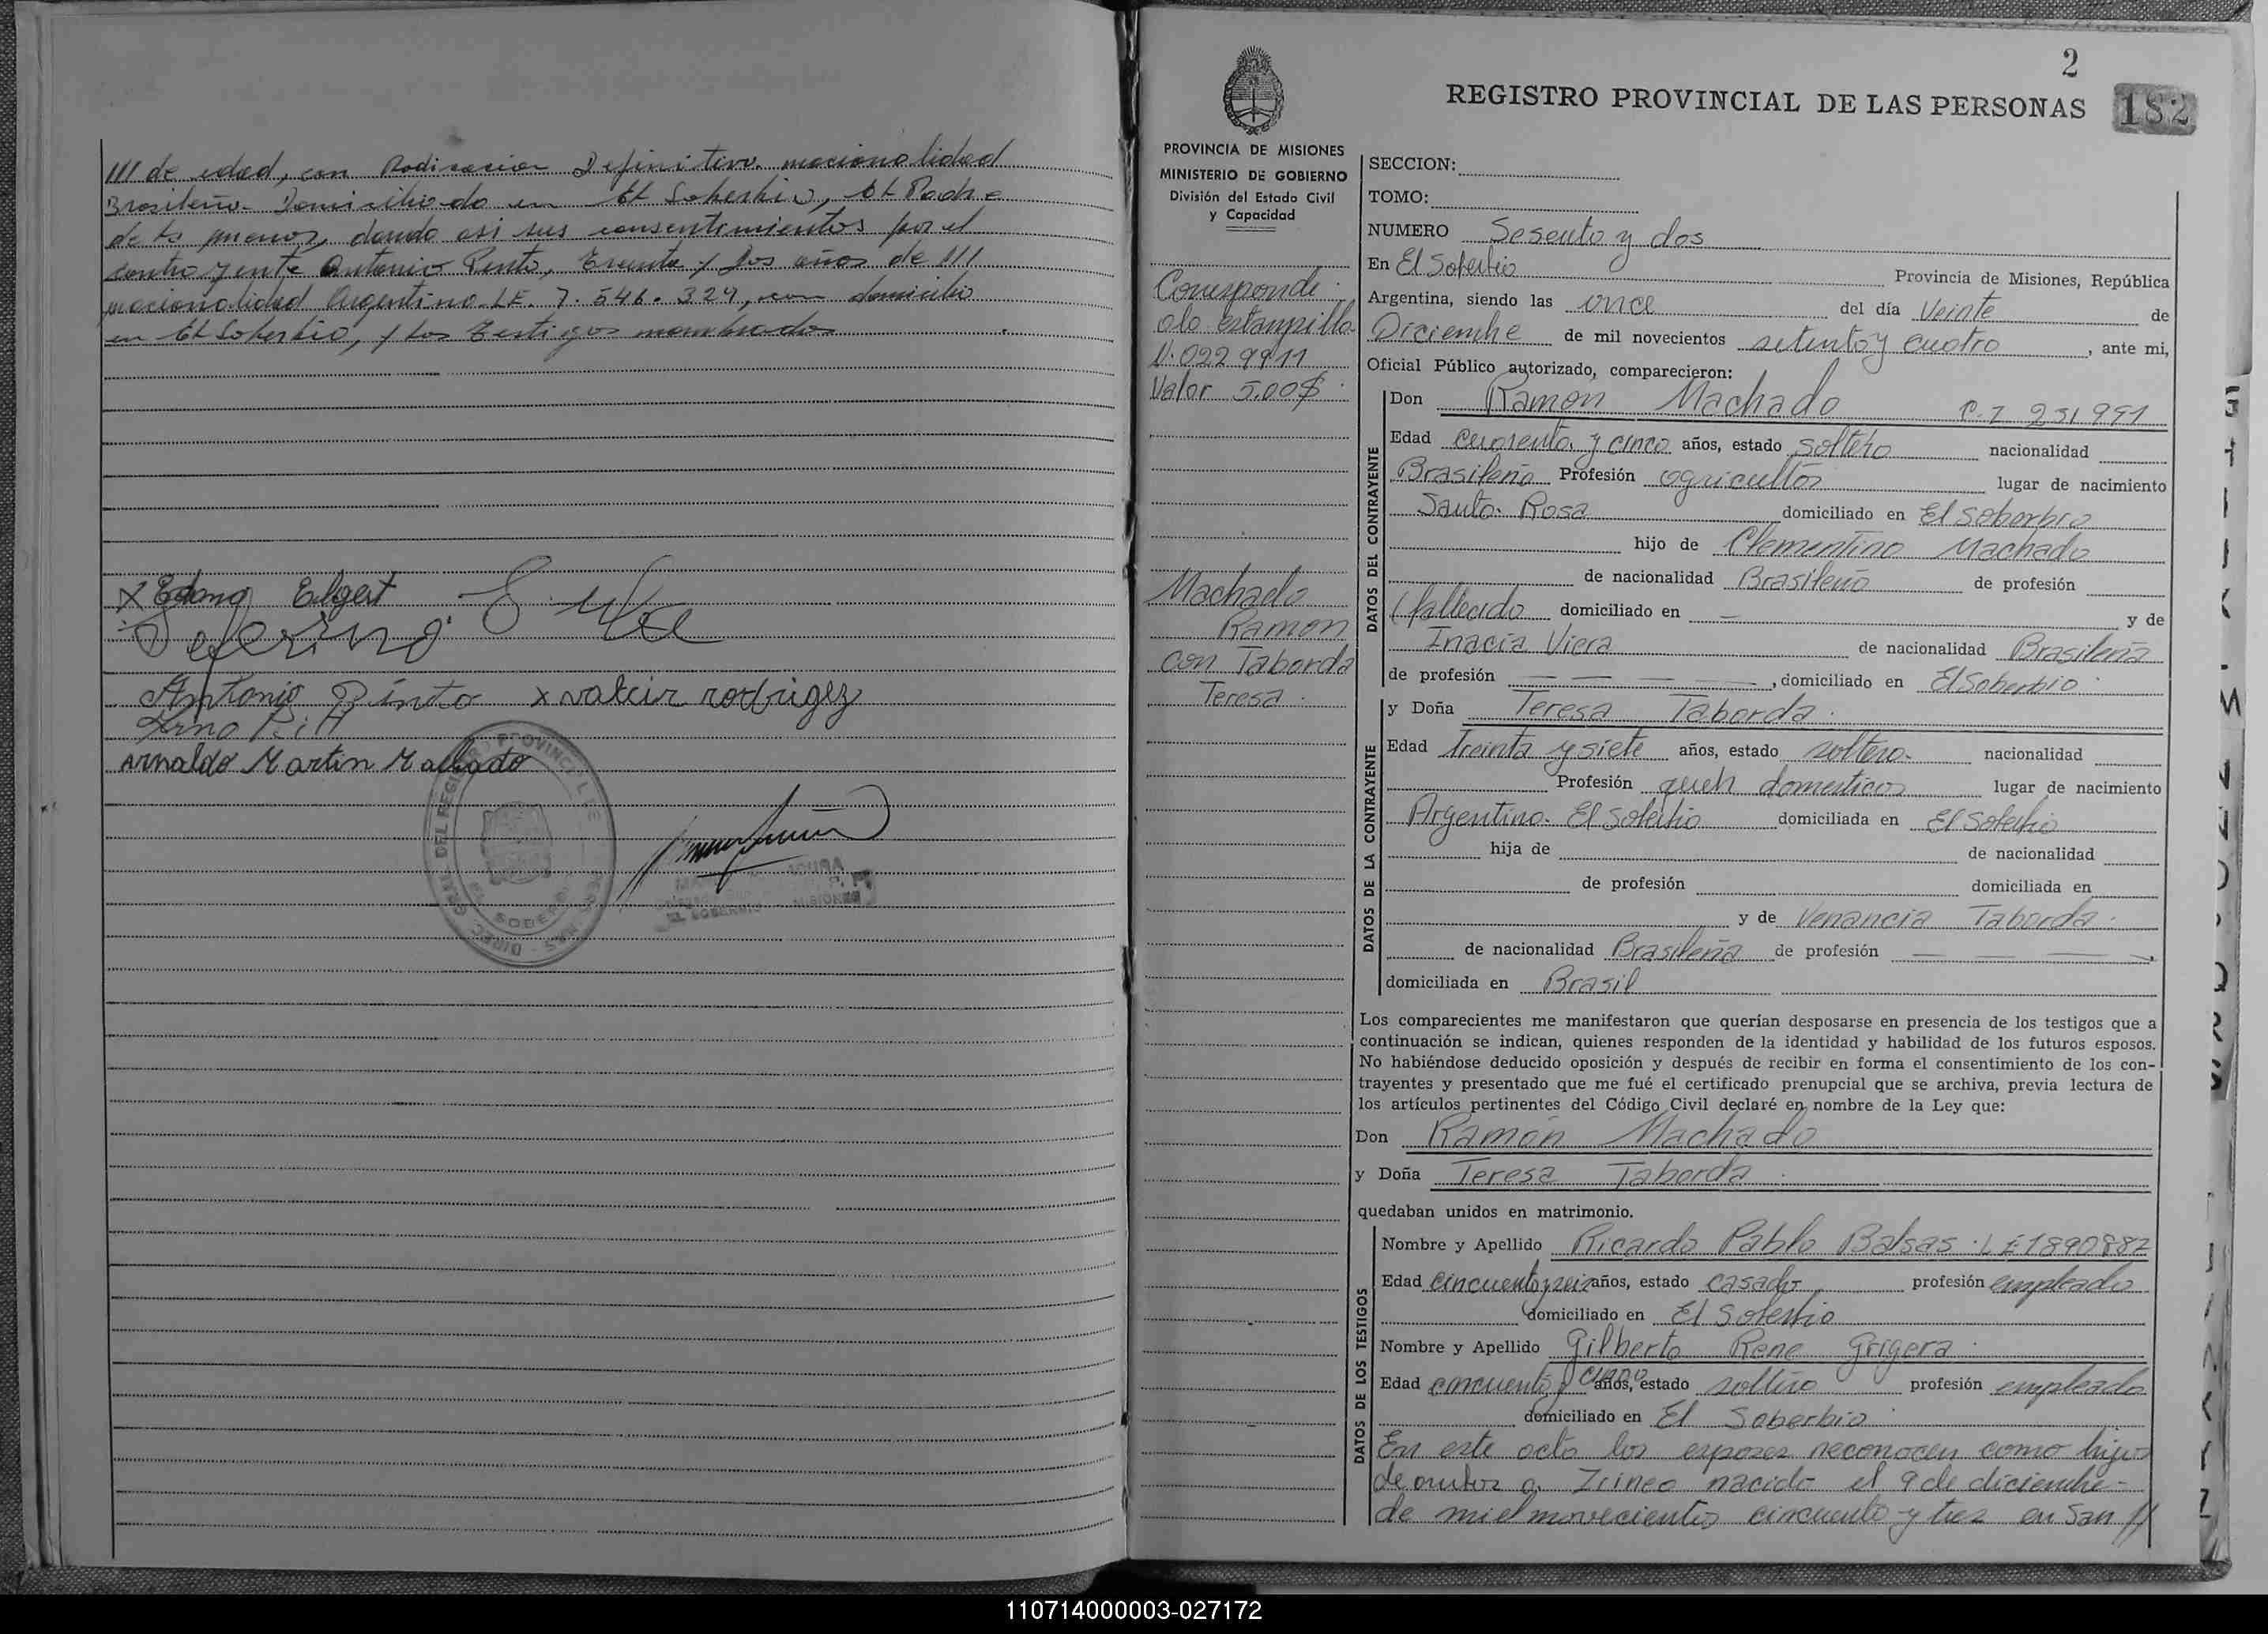 III de edad, con Radicacion Definitiva. nacionalidad
Brasileña. Domiciliado en El Soberbio, el Padre
de la menor, dando asi sus consentimientos por el
contrayente Antonio Pinto, Treinta y dos años de III
nacionalidad Argentino LE. 7. 546. 329, con domicilio
en El Soberbio, y los Testigos nombrados
Elgert
Antonio Pinto x valcir rodrigez
Arnaldo Martin Machado
2
REGISTRO PROVINCIAL DE LAS PERSONAS 182
PROVINCIA DE MISIONES
MINISTERIO DE GOBIERNO
División del Estado Civil
y Capacidad
Corresponde
a la estampilla
N. 0229911
Valor 5.00$
Machado
Ramon
con Taborda
Teresa.
SECCION:
TOMO:
NUMERO Sesenta y dos
En El Soberbio Provincia de Misiones, República
Argentina, siendo las once del día Veinte de
Diciembre de mil novecientos setenta y cuatro, ante mi,
Oficial Público autorizado, comparecieron:
DATOS DEL CONTRAYENTE
Don Ramon Machado C.I 251951
Edad cuarenta y cinco años, estado soltero nacionalidad
Brasileña Profesión agricultor lugar de nacimiento
Santa Rosa domiciliado en El soberbio
hijo de Clementino Machado
de nacionalidad Brasileño de profesión
(fallecido domiciliado en — y de
Inacia Viera de nacionalidad Brasileña
de profesión — — — —, domiciliado en El Soberbio
DATOS DE LA CONTRAYENTE
y Doña Teresa Taborda.
Edad Treinta y siete años, estado soltera. nacionalidad
Profesión queh domesticos lugar de nacimiento
Argentina. El Soberbio domiciliada en El Soberbio
hija de de nacionalidad
de profesión domiciliada en
y de Venancia Taborda.
de nacionalidad Brasileña de profesión — — — —
domiciliada en Brasil
Los comparecientes me manifestaron que querían desposarse en presencia de los testigos que a
continuación se indican, quienes responden de la identidad y habilidad de los futuros esposos.
No habiéndose deducido oposición y después de recibir en forma el consentimiento de los con-
trayentes y presentado que me fué el certificado prenupcial que se archiva, previa lectura de
los artículos pertinentes del Código Civil declaré en nombre de la Ley que:
Don Ramón Machado
y Doña Teresa Taborda.
quedaban unidos en matrimonio.
DATOS DE LOS TESTIGOS
Nombre y Apellido Ricardo Pablo Balsas. LE 1890882
Edad cincuenta y seis años, estado casado profesión empleado
domiciliado en El Soberbio
Nombre y Apellido Gilberto Rene Grigera
Edad cincuenta y cinco años, estado soltero profesión empleado
domiciliado en El Soberbio
En este acto los esposos reconocen como hijos
de ambos a Irineo nacido el 9 de diciembre-
de miel novecientos cincuenta y tres en San //
110714000003-027172